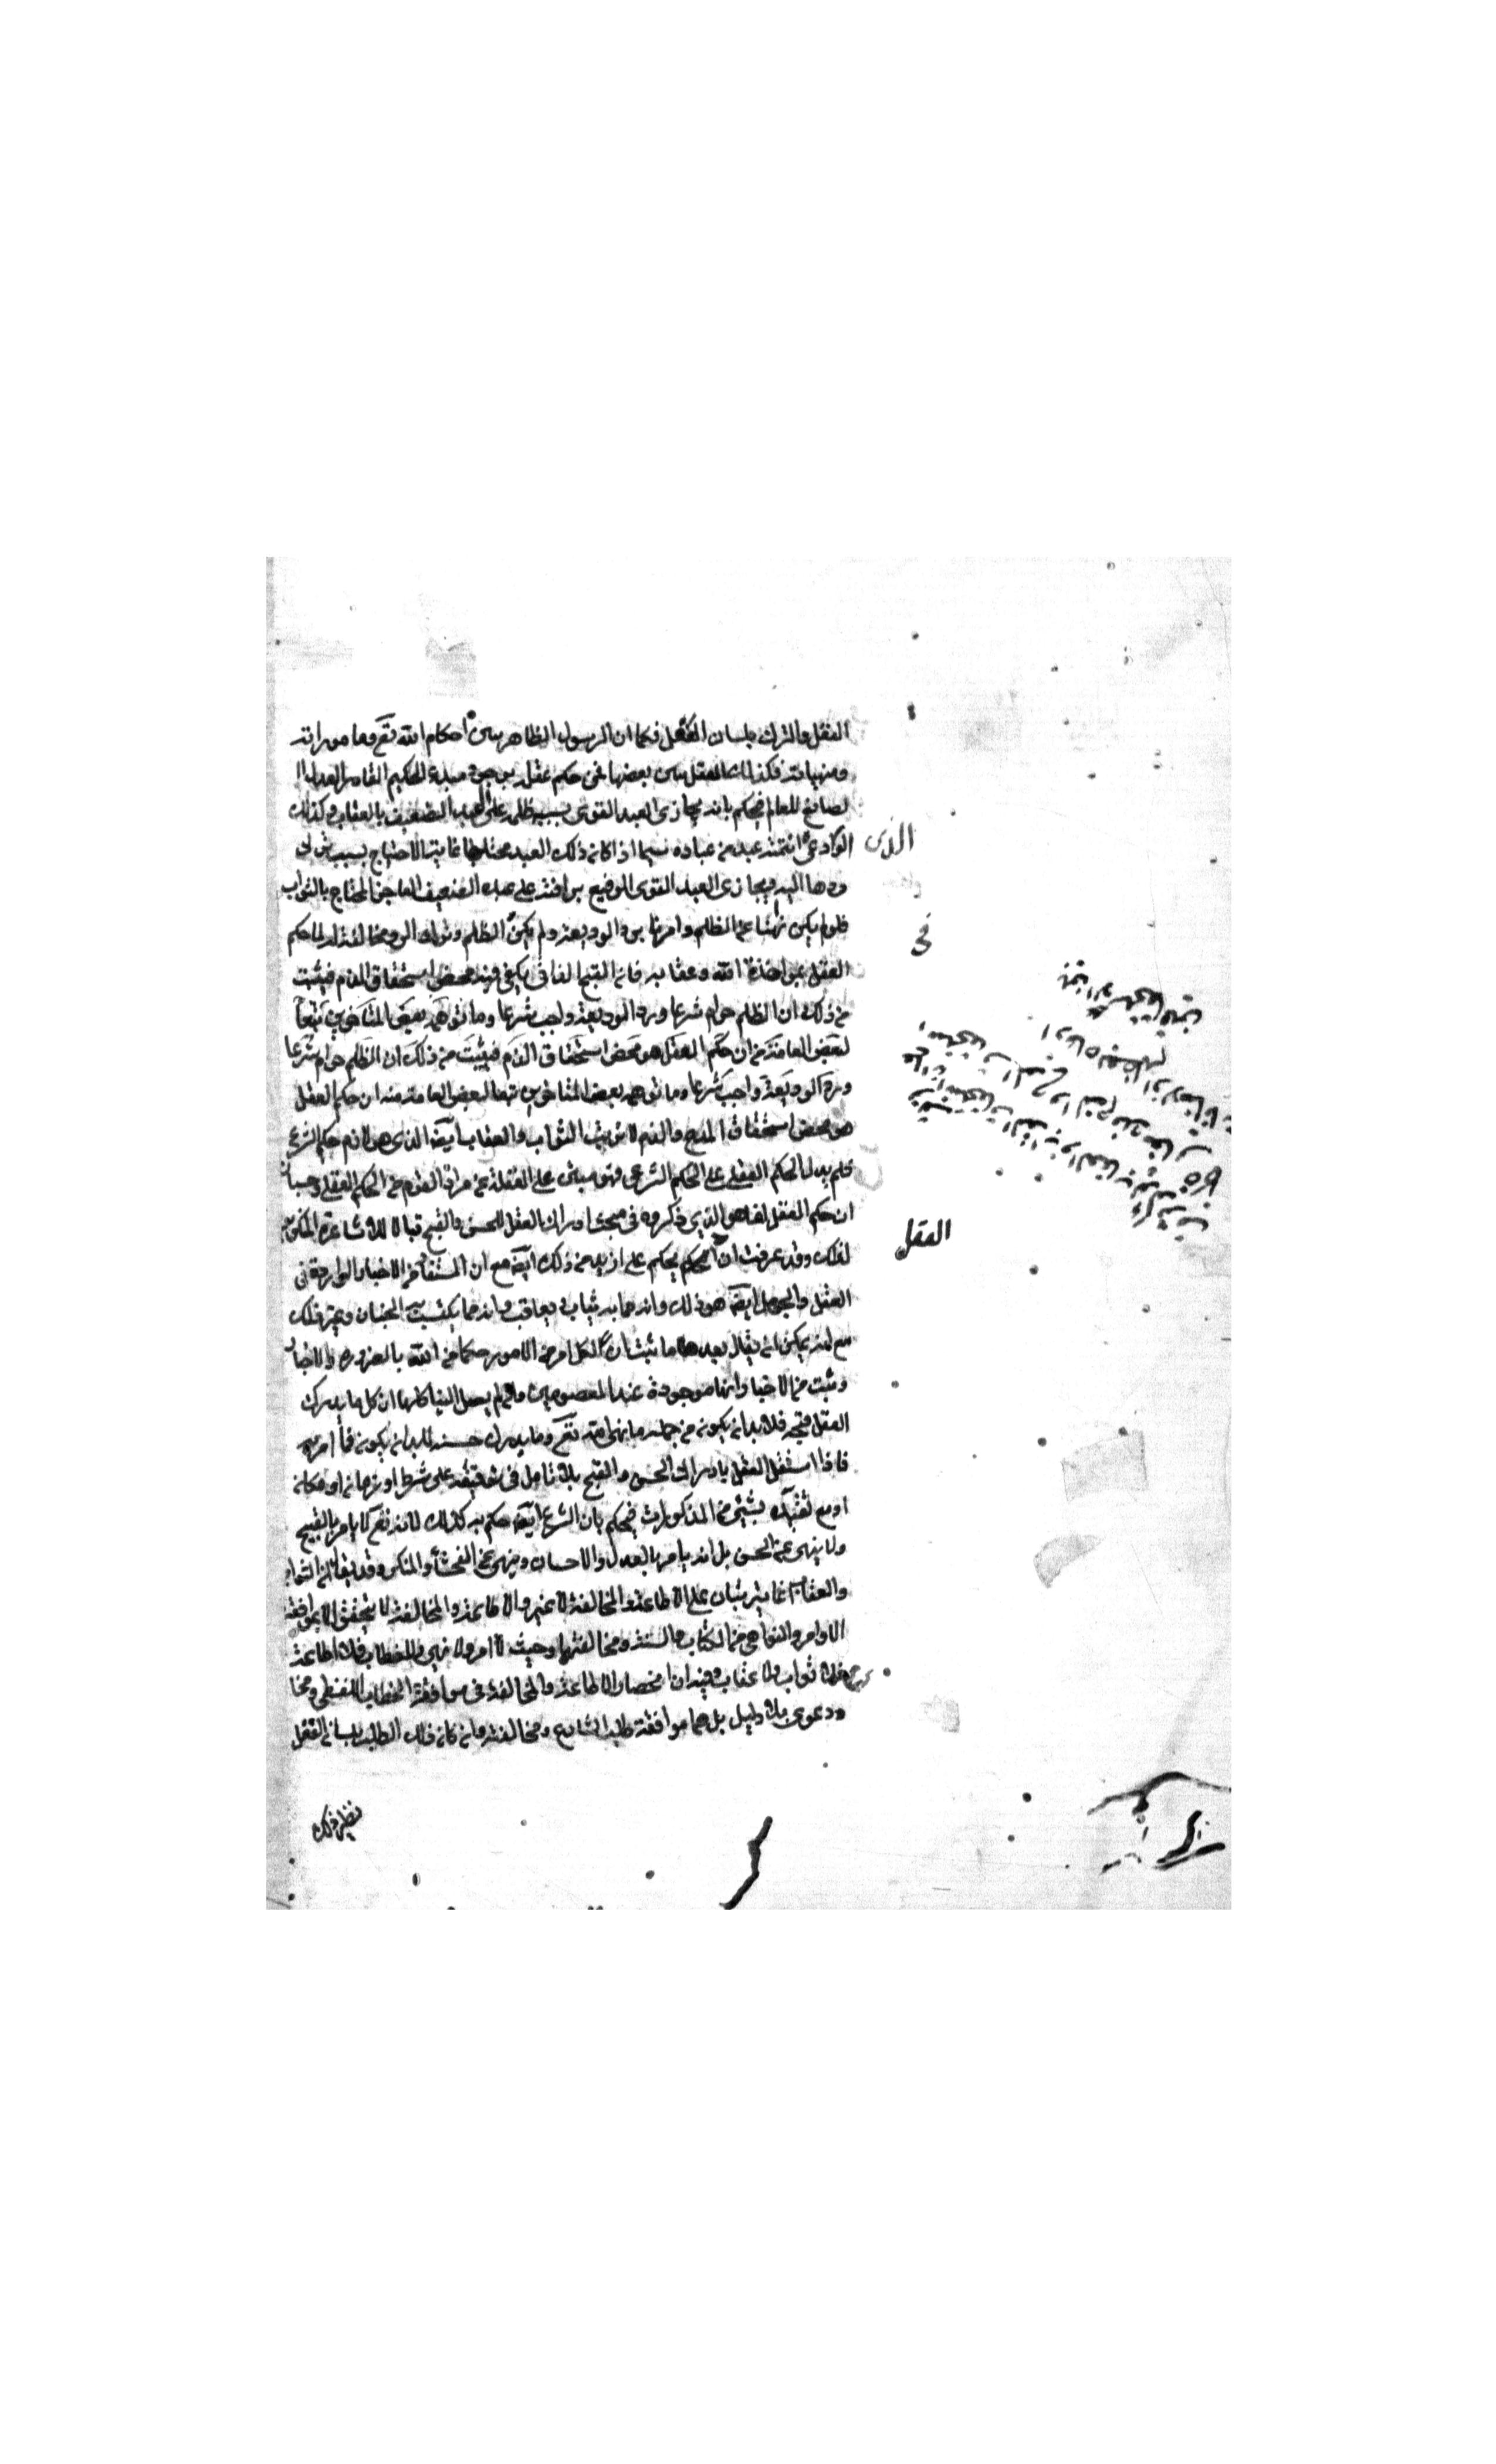 الفعل والترك بلسان العقل فكما ان الرسول الظاهر يبين احكام الله تع وماموراته
ومنهياته فكذلك العقل يبين بعضها فمن حكم عقله بوجود مبدء الحكيم القادر العدل ا
لصانع للعالم فيحكم بانه يجازى العبد القوى بسبب ظلمه على العبد الضعيف بالعقاب وكذلك
الذى
الودعى ائتمنه عبد من عباده سيما اذا كان ذلك العبد محتاجا غاية الاحتياج بسبب ترك
ردها اليه ويجازى العبد القوى الرفيع برافته على عبده الضعيف العاجز المحتاج بالثواب
فلو لم يكن نهينا عن الظلم وامرنا برد الوديعة ولم يكن الظلم وترك الرد مخالفة له لما حكم
فى
العقل بمواخذة الله وعقابه فان القبح الذاتى يكفى فيه محض استحقاق الذم فيثبت
من ذلك ان الظلم حرام شرعا ورد الوديعة واجب شرعا وما توهمه بعض المتاخرين تبعاً
لبعض العامة من ان حكم العقل هو محض استحقاق الذم فيثبت من ذلك ان الظلم حرام شرعا
ورد الوديعة واجب شرعا وما توهمه بعض المتاخرين تبعا لبعض العامة منه ان حكم العقل
هو محض استحقاق المدح والذم لا ترتب الثواب والعقاب ايضا الذى هو لازم حكم الشرع
فلم يدل الحكم العقلى على الحكم الشرعى فهو مبنى على الغفلة عن مراد القوم من الحكم العقلى وحسبا
ان حكم العقل انما هو الذى ذكروه فى مبحث ادراك العقل للحسن والقبح قبالا للاشاعرة المنكرين
العقل
لذلك وقد عرفت ان الحكم يحكم على ازيد من ذلك ايضا مع ان المستفاد من الاخبار الواردة فى
العقل والجهل ايضا هو ذلك وانه مما به يثاب ويعاقب وانه مما يكتسب به الجنان وغير ذلك
مع انه يمكن ان يقال بعد ما ثبت ان لكل امر من الامور حكما من الله بالضرورة والاخبار
وثبت من الاخبار انها موجودة عند المعصومين وان لم يصل الينا كلها ان كل ما يدرك
العقل قبحه فلا بد ان يكون من جملة ما نهى الله تع وما يدرك حسنه لا بد ان يكون مما امر به
فاذا استقل العقل بادراك الحسن والقبح بلا تامل فى توقيفه على شرط او زمان او مكان
او مع تقييده بشئ من المذكورات فيحكم بان الشرع ايضا حكم به كذلك لانه تع لا يامر بالقبيح
ولا ينهى عن الحسن بل انه يامر بالعدل والاحسان وينهى عن الفحشاء والمنكر وقد يقال ان الثواب
والعقاب انما يترتبان على الاطاعة والمخالفة لا غير والاطاعة والمخالفة لا يتحقق الا بموافقة
الاوامر والنواهى من الكتاب والسنة ومخالفتهما وحيث لا امر ولا نهى ولا خطاب فلا اطاعة
فلا ثواب ولا عقاب وفيه ان انحصار الاطاعة والمخالفة فى موافقة الخطاب اللفظى ومخا
ودعوى بلا دليل بل هما موافقة طلب الشارع ومخالفته وان كان ذلك الطلب بلسان العقل
نظير ذلك